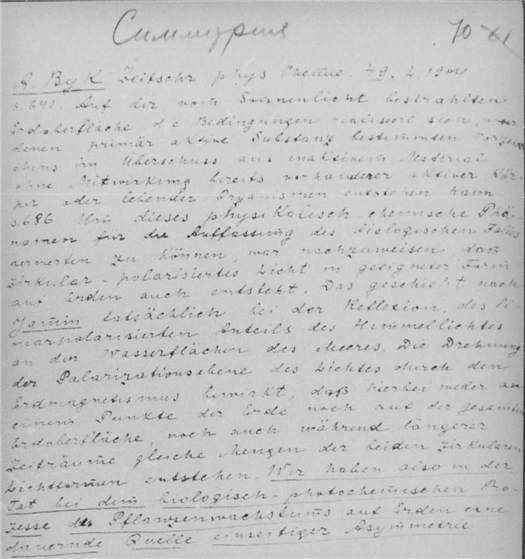 Симметрия 70-61
A Byk Zeitschr phys Chemie. 49. 4. 1904
s. 641. Auf der vom Sonnenlicht bestrahlten
Erdoberfläche die Bedingungen realisiert sich, unter
denen primär aktive Substanz bestimmten Vorzei
chens im Überschuss aus inaktivem Material
ohne Mitwirkung bereits vorhandener aktiver Kör
per oder lebender Organismen entstehen kann.
s. 686 Um dieses physikalisch-chemische Phä
nomen für die Auffassung des biologischen Falles
verwerten zu können, war nachzuweisen, daß
zirkular-polarisiertes Licht in geeigneter Form
auf Erden auch entsteht. Das geschieht nach
Jamin tatsächlich bei der Reflexion, des li
nearpolarisierten Anteils des Himmellichtes
an den Wasserflächen des Meeres. Die Drehnung
der Polarizationsebene des Lichtes durch den
Erdmagnetismus bewirkt, daß hierbei weder an
einem Punkte der Erde noch auf der gesamten
Erdoberfläche, noch auch während längerer
Zeiträume gleiche Mengen der beiden zirkularen
Lichtformen entstehen. Wir haben also in der
Tat bei dem biologisch-photochemischen Pro-
zesse des Pflanzenwachstums auf Erden eine
dauernde Quelle einseitiger Asymmetrie